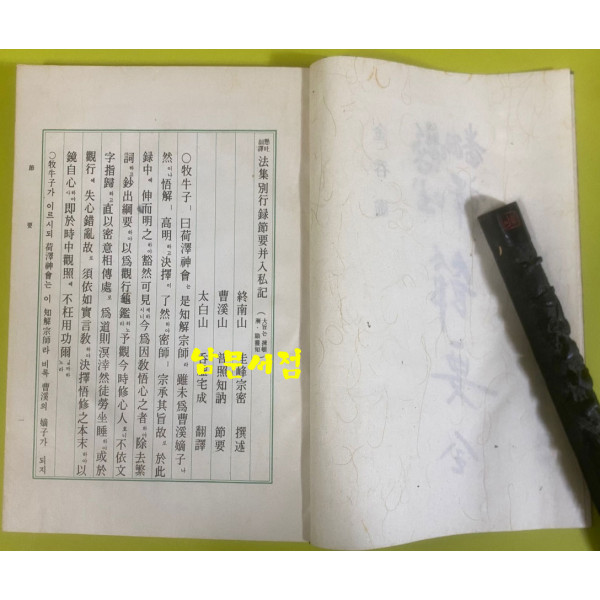 懸吐
詞譯
法集別行録節要并入私記
終南山 圭峰宗密 撰述
曹溪山 普照知訥 節要
太白山 呑虛宅成 翻譯
○牧牛子ㅣ 曰荷澤神會는 是知解宗師라 雖未爲曹溪嫡子나
然이나 悟解ㅣ 高明하고 決擇이 了然하니 密師ㅣ 宗承其旨故로 於此
録中에 伸而明之하야 豁然可見이라 今爲因教悟心之者하야 除去繁
詞하고 鈔出綱要하야 以爲觀行龜鑑하노라 予觀今時修心人호니 不依文
字指歸하고 直以密意相傳處로 爲道則溟涬然徒勞坐睡하며 或於
觀行에 失心錯亂故로 須依如實言教하야 決擇悟修之本末하야 以
鏡自心하면 即於時中觀照에 不枉用功爾니라
○牧牛子가 이르시되 荷澤神會는 이 知解宗師라 비록 曹溪의 嫡子가 되지
節要
남문서점